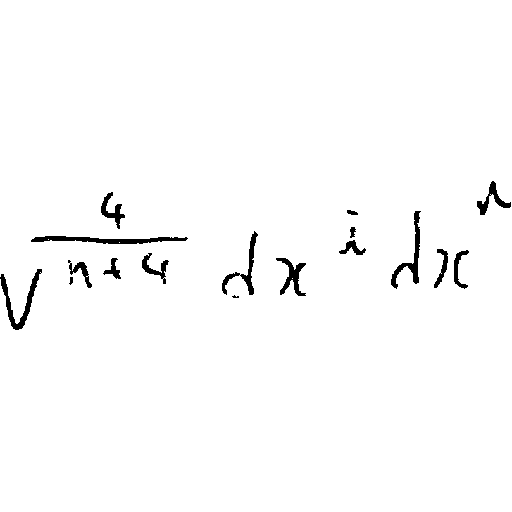 V^{\frac{4}{n+4}} dx^{\bar{i}} dx^{s}